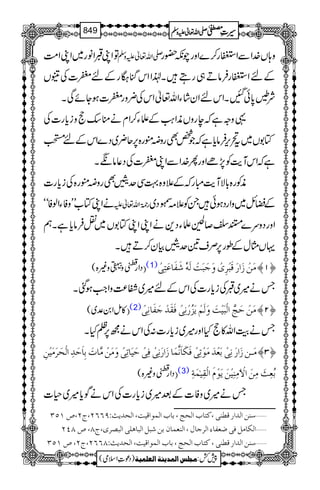 سیرتِ مصطفیٰ صلی اللہ تعالیٰ علیہ وسلم 849
وہاں خدا سے استغفار کرے اور چونکہ حضور صلی اللہ تعالیٰ علیہ وسلم تو اپنی قبر انور میں اپنی امت
کے لئے استغفار فرماتے ہی رہتے ہیں۔ لہٰذا اس گنہگار کے لئے مغفرت کی تینوں
شرطیں پائی گئیں۔ اس لئے ان شاء اللہ تعالیٰ اس کی ضرور مغفرت ہو جائے گی۔
یہی وجہ ہے کہ چاروں مذاہب کے علماء کرام نے مناسک حج و زیارت کی
کتابوں میں یہ تحریر فرمایا ہے کہ جو شخص بھی روضہ منورہ پر حاضری دے اس کے لئے مستحب
ہے کہ اس آیت کو پڑھے اور پھر خدا سے اپنی مغفرت کی دعا مانگے۔
مذکورہ بالا آیت مبارکہ کے علاوہ بہت سی حدیثیں بھی روضہ منورہ کی زیارت
کے فضائل میں وارد ہوئی ہیں جن کو علامہ سمہودی رحمۃ اللہ تعالیٰ علیہ نے اپنی کتاب ”وفاء الوفاء“
اور دوسرے مستند سلف صالحین علماء دین نے اپنی اپنی کتابوں میں نقل فرمایا ہے۔ ہم
یہاں مثال کے طور پر صرف تین حدیثیں بیان کرتے ہیں۔
﴿۱﴾ مَنْ زَارَ قَبْرِیْ وَجَبَتْ لَہٗ شَفَاعَتِیْ (1) (دارقطنی و بیہقی وغیرہ)
جس نے میری قبر کی زیارت کی اس کے لئے میری شفاعت واجب ہو گئی۔
﴿۲﴾ مَنْ حَجَّ الْبَیْتَ وَلَمْ یَزُرْنِیْ فَقَدْ جَفَانِیْ (2) (کامل ابن عدی)
جس نے بیت اللہ کا حج کیا اور میری زیارت نہ کی اس نے مجھ پر ظلم کیا۔
﴿۳﴾ مَنْ زَارَنِیْ بَعْدَ مَوْتِیْ فَکَاَنَّمَا زَارَنِیْ فِیْ حَیَاتِیْ وَمَنْ مَّاتَ بِاَحَدِ الْحَرَمَیْنِ
بُعِثَ مِنَ الْاٰمِنِیْنَ یَوْمَ الْقِیٰمَۃِ (3) (دارقطنی وغیرہ)
جس نے میری وفات کے بعد میری زیارت کی اس نے گویا میری حیات
سنن الدار قطنی، کتاب الحج، باب المواقیت، الحدیث: ۲۶۶۹، ج۲، ص ۳۵۱
الکامل فی ضعفاء الرجال، النعمان بن شبل الباھلی البصری، ج۸، ص ۲۴۸
سنن الدار قطنی، کتاب الحج، باب المواقیت، الحدیث: ۲۶۶۸، ج۲، ص ۳۵۱
پیش کش: مجلس المدینۃ العلمیۃ (دعوتِ اسلامی)